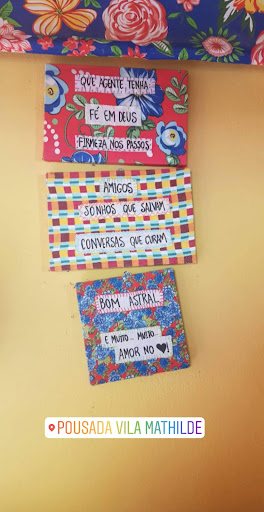 QUE AGENTE TENHA
FÉ EM DEUS
FIRMEZA NOS PASSOS
AMIGOS
SONHOS QUE SALVAM
CONVERSAS QUE CURAM
BOM ASTRAL
E MUITO... MUITO...
AMOR NO ♥!
POUSADA VILA MATHILDE